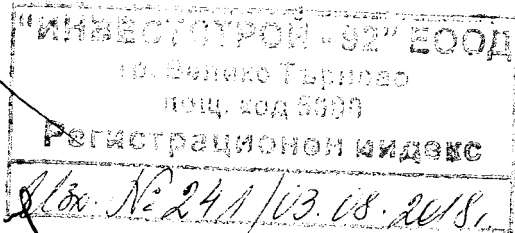 "ИНВЕСТСТРОЙ - 92" ЕООД
гр. Велико Търново
пощ. код 5000
Регистрационен индекс
Изх. № 241/03.08.2018г.